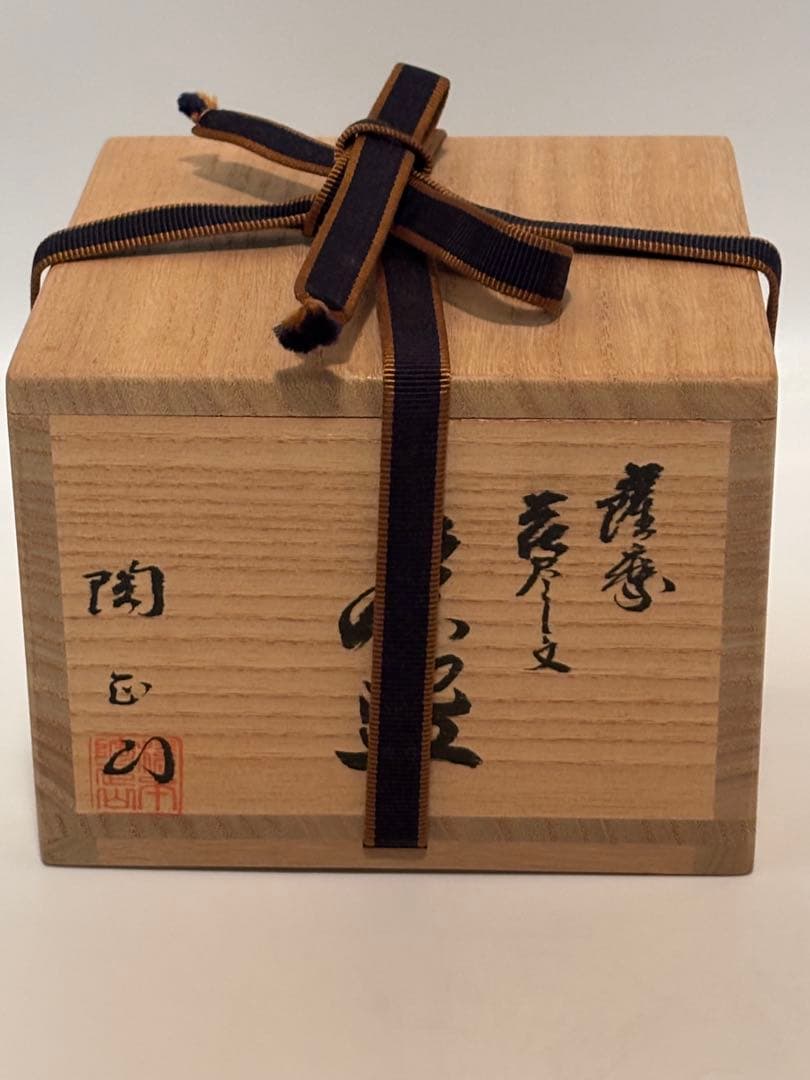 薩摩
花尽し文
茶盌
陶正山